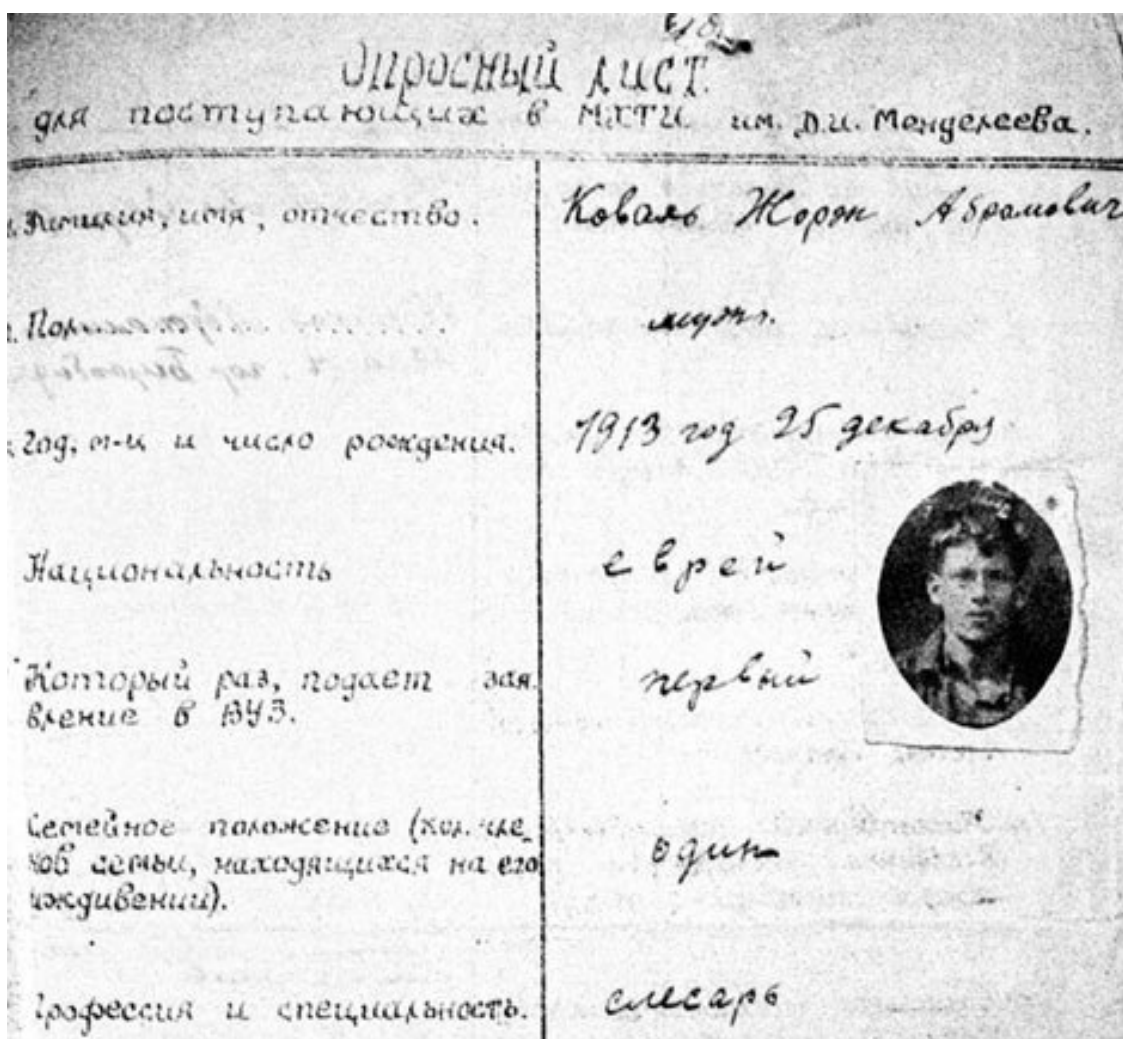 Опросный лист.
для поступающих в МХТИ им. Д.И. Менделеева.
Фамилия, имя, отчество.
Коваль Жорж Абрамович
Пол
мужс.
Год, м-ц и число рождения.
1913 год 25 декабря
Национальность
еврей
Который раз, подает зая.
вление в ВУЗ.
первый
Семейное положение (кол. чле_
нов семьи, находящихся на его
иждивении).
один
Профессия и специальность.
слесарь